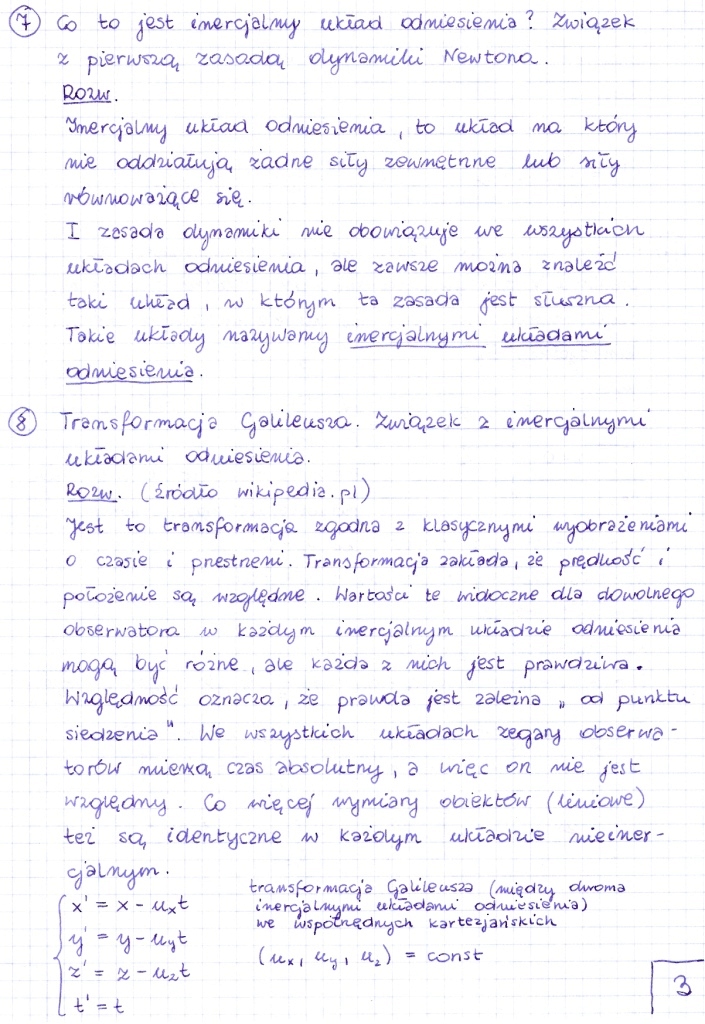 7 Co to jest inercjalny układ odniesienia? Związek
z pierwszą zasadą dynamiki Newtona.
Rozw.
Inercjalny układ odniesienia, to układ na który
nie oddziałują żadne siły zewnętrzne lub siły
równoważące się.
I zasada dynamiki nie obowiązuje we wszystkich
układach odniesienia, ale zawsze można znaleźć
taki układ, w którym ta zasada jest słuszna.
Takie układy nazywamy inercjalnymi układami
odniesienia.
8 Transformacja Galileusza. Związek z inercjalnymi
układami odniesienia.
Rozw. (źródło wikipedia.pl)
Jest to transformacja zgodna z klasycznymi wyobrażeniami
o czasie i przestrzeni. Transformacja zakłada, że prędkość i
położenie są względne. Wartości te widoczne dla dowolnego
obserwatora w każdym inercjalnym układzie odniesienia
mogą być różne, ale każda z nich jest prawdziwa.
Względność oznacza, że prawda jest zależna „od punktu
siedzenia". We wszystkich układach zegary obserwa-
torów mierzą czas absolutny, a więc on nie jest
względny. Co więcej wymiary obiektów (liniowe)
też są identyczne w każdym układzie nieiner-
cjalnym.
x' = x - uₓt
y' = y - u_yt
z' = z - u_zt
t' = t
transformacja Galileusza (między dwoma
inercjalnymi układami odniesienia)
we współrzędnych kartezjańskich
(uₓ, u_y, u_z) = const
3